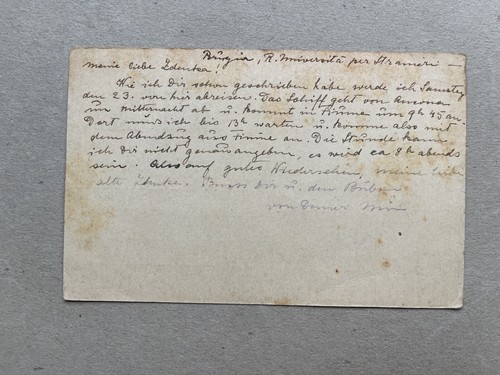 Perugia, R. Università per Stranieri —
meine liebe Zdenka!
Wie ich Dir schon geschrieben habe werde ich Samstag
den 23. von hier abreisen. Das Schiff geht von Ancona
um Mitternacht ab u. kommt in Fiume um 9h 45 an.
Dort muss ich bis 13h warten u. komme also mit
dem Abendzug aus Fiume an. Die Stunde kann
ich Dir nicht genau angeben, es wird ca 8h abends
sein. Also auf gutes Wiedersehen, meine liebe
alte Zdenka. Bussi Dir u. den Buben
von Deiner